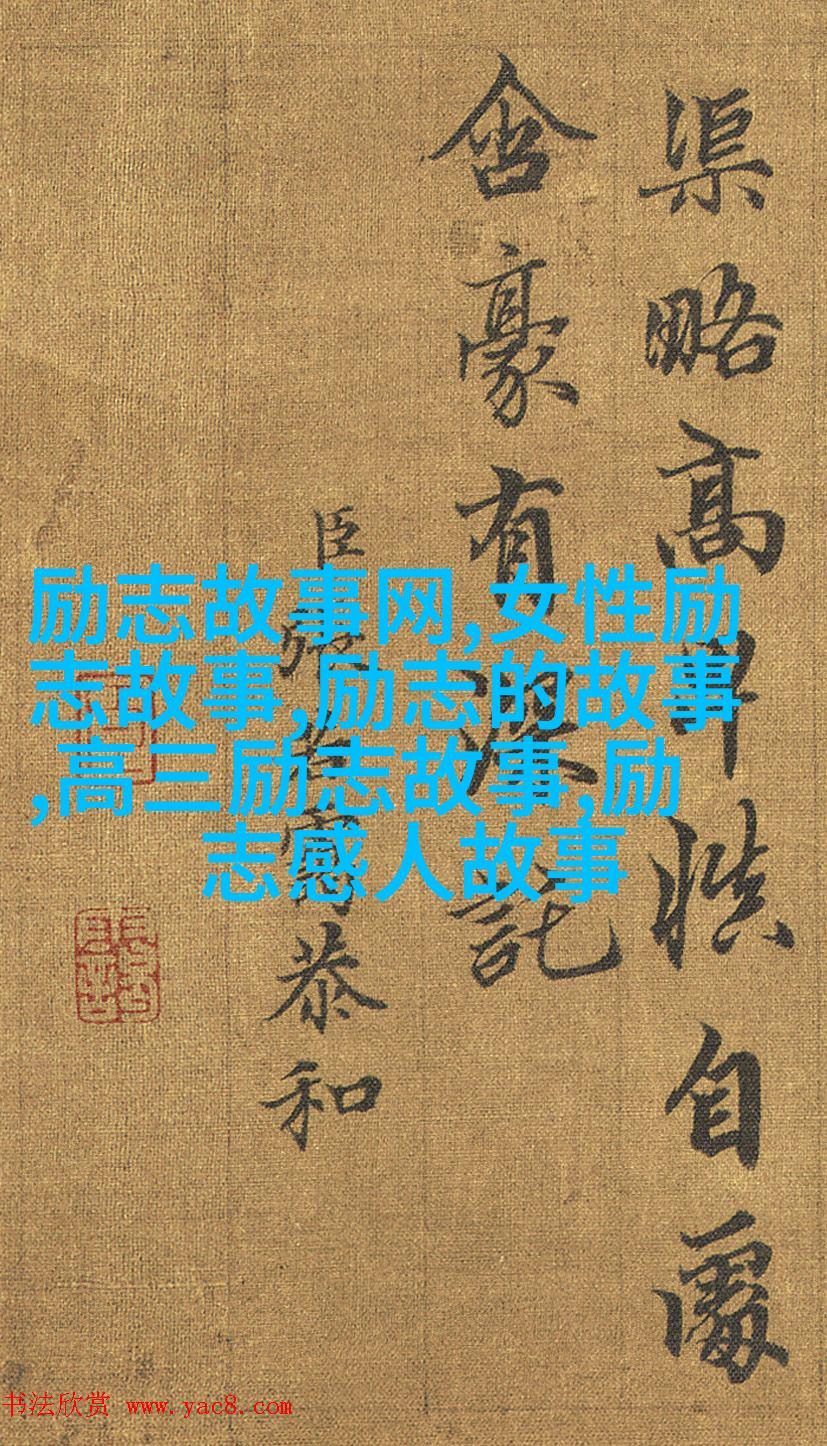 渠略高卑慎自處
含豪有深託
臣張若靄恭和
励志故事网,女性励
志故事,励志的故事
,高三励志故事,励
志感人故事
书法欣赏 www.yac8.com